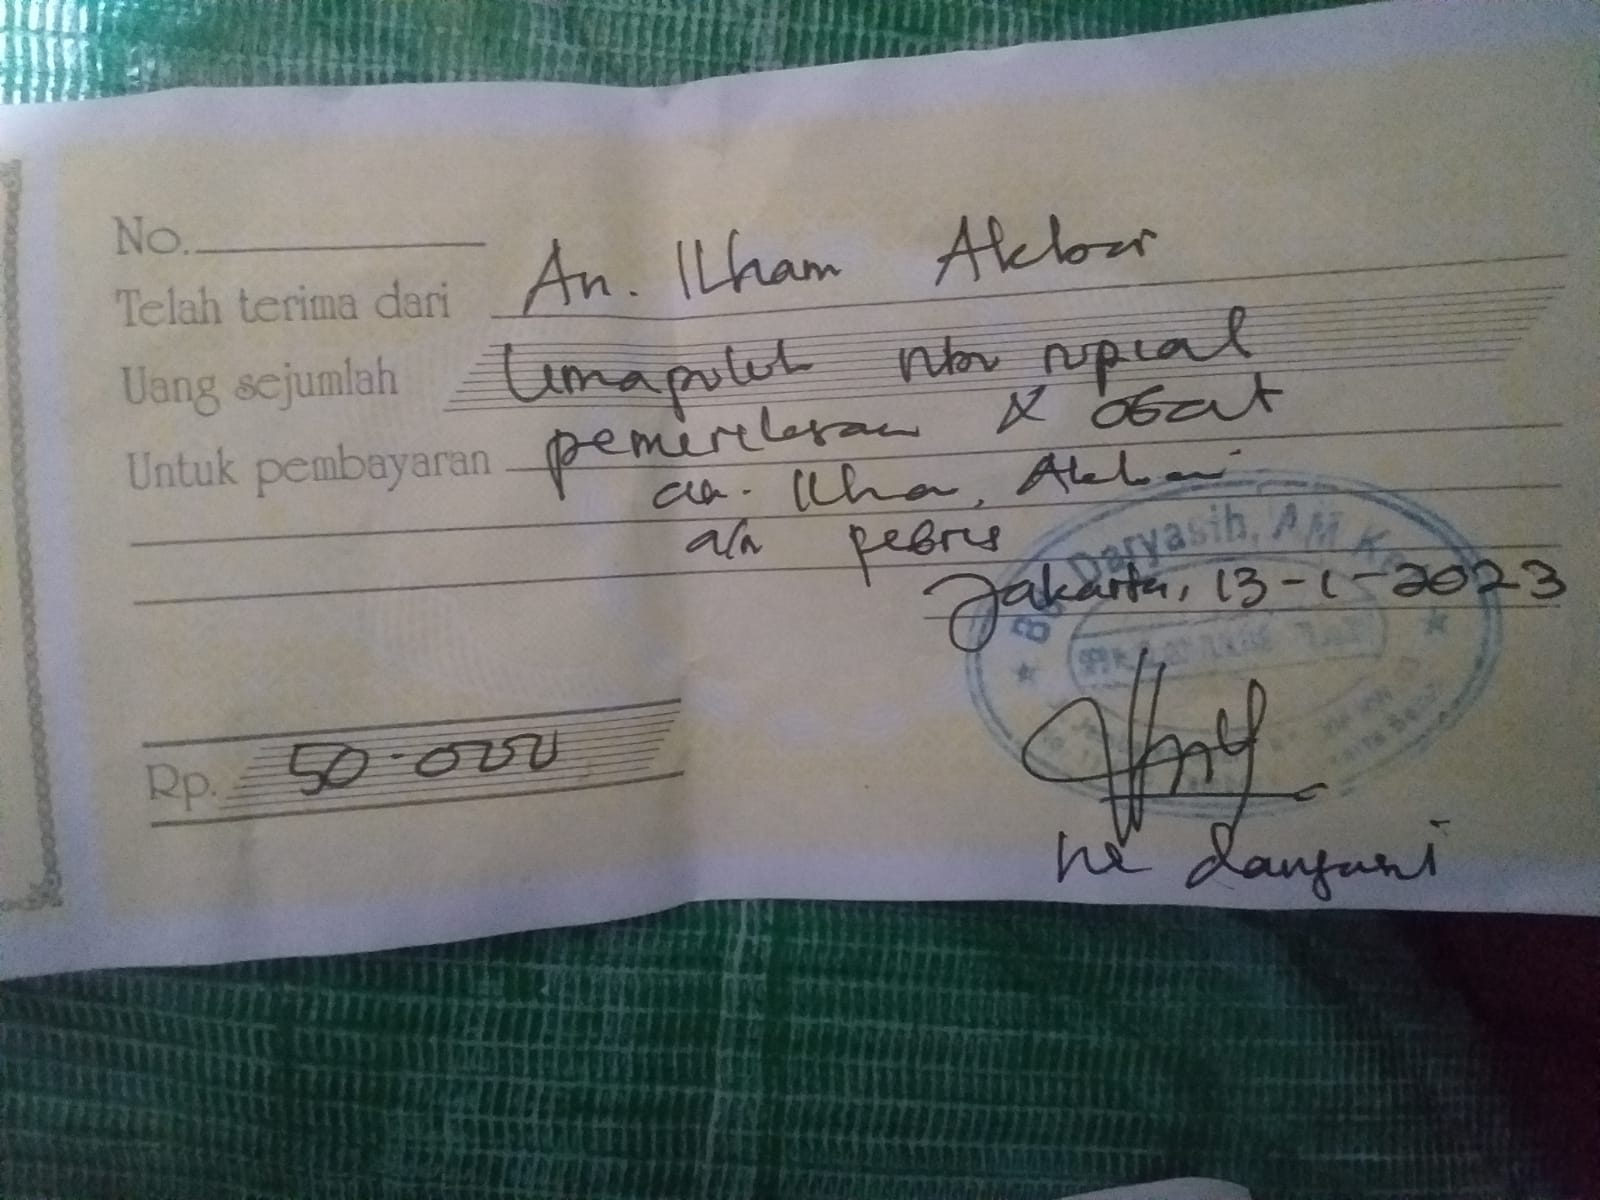 No.
Telah terima dari An. Ilham Akbar
Uang sejumlah limapuluh ribu rupiah
Untuk pembayaran pemeriksaan & obat
an. Ilham Akbar
a/n febris
Daryasih, AM Ke
Jakarta, 13-1-2023
Rp. 50.000